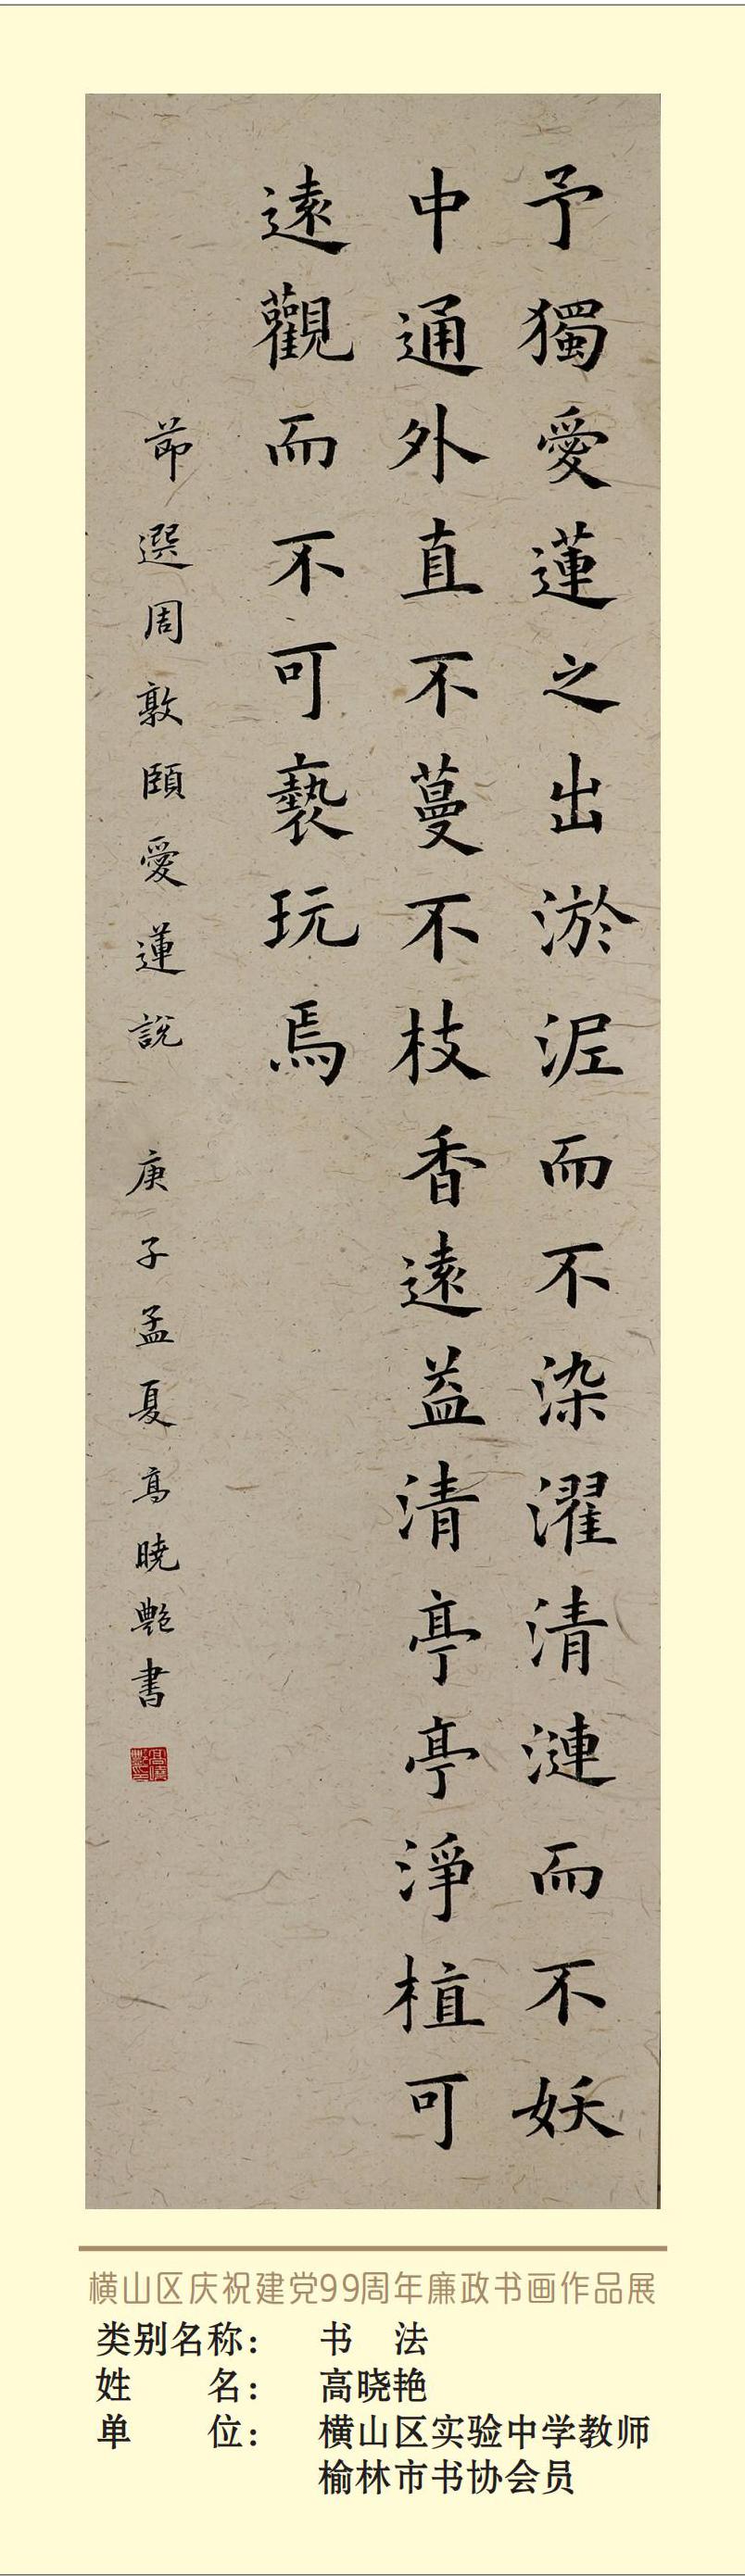 予獨愛蓮之出淤泥而不染濯清漣而不妖
中通外直不蔓不枝香遠益清亭亭淨植可
遠觀而不可褻玩焉
節選周敦頤愛蓮說 庚子孟夏高曉艷書
横山区庆祝建党99周年廉政书画作品展
类别名称： 书 法
姓 名： 高晓艳
单 位： 横山区实验中学教师
榆林市书协会员